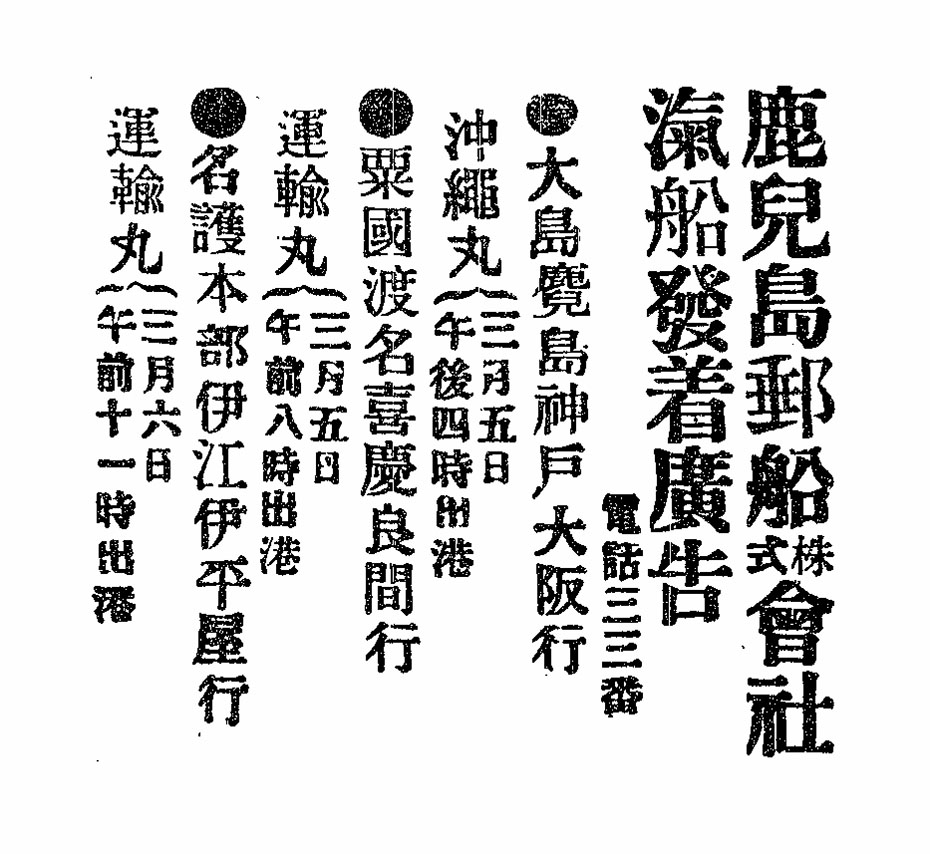 鹿兒島郵船株式會社
滊船發着廣告
電話三三番
●大島麑島神戸大阪行
沖繩丸{三月五日
午後四時出港
●粟國渡名喜慶良間行
運輸丸{三月五日
午前八時出港
●名護本部伊江伊平屋行
運輸丸{三月六日
午前十一時出港